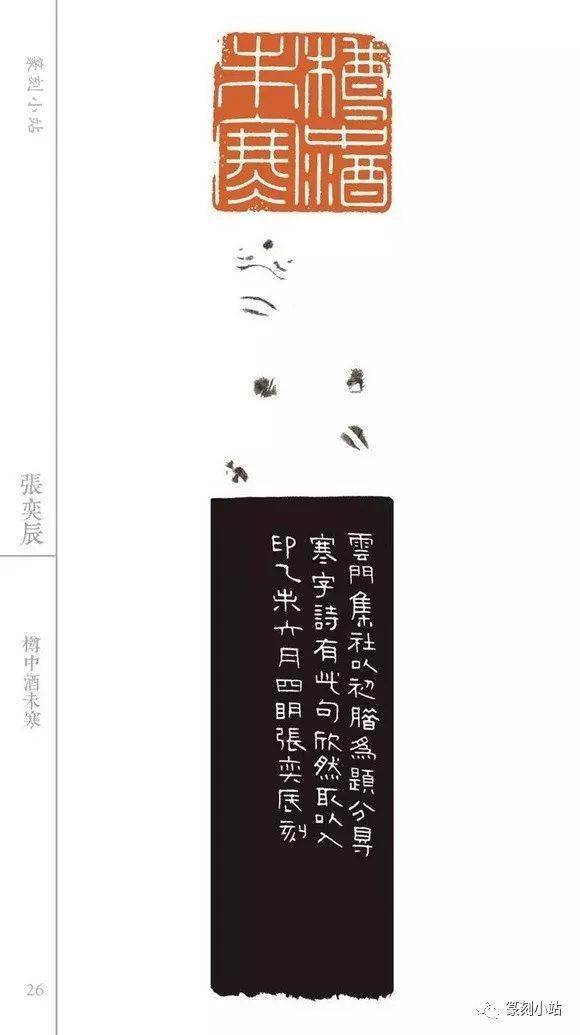 樽中酒
未寒
雲門集社以初臈爲題分㝵
寒字詩有此句欣然取以入
印乙未六月四眀張奕辰刻
篆刻小站
張奕辰
樽中酒未寒
26
篆刻小站